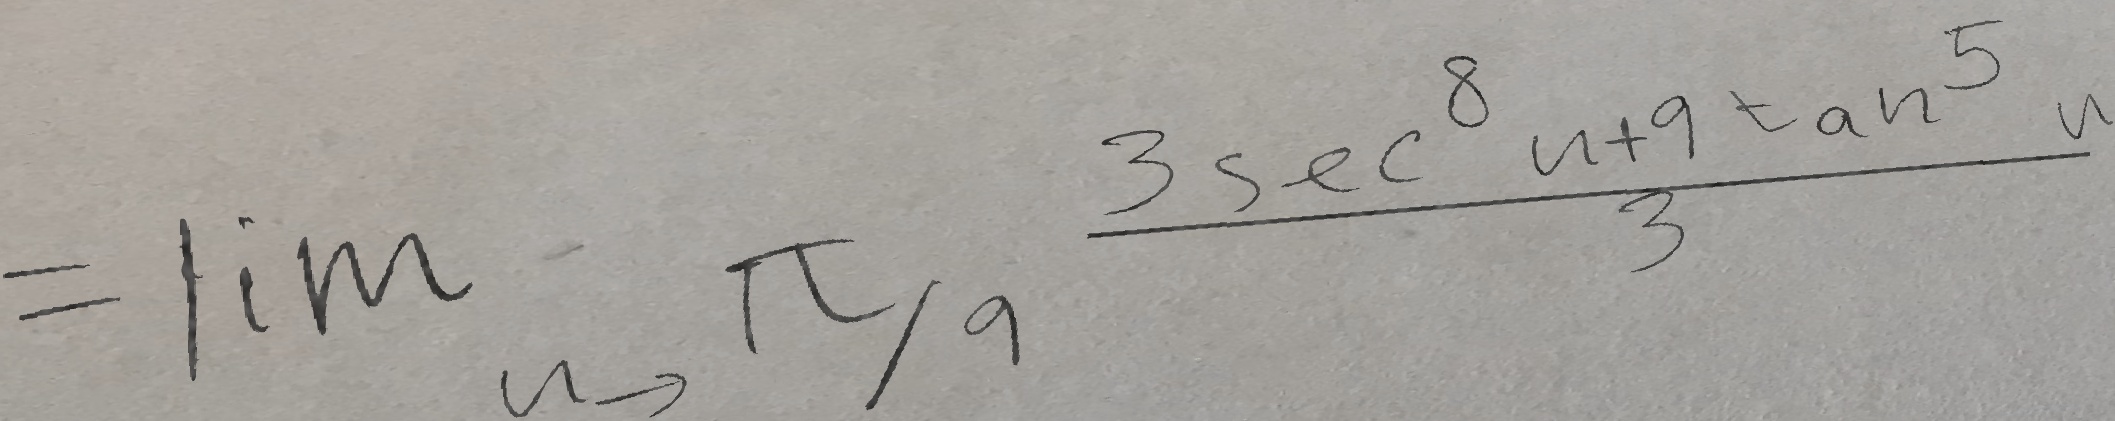 = lim u→ π/9 (3 sec^8 u + 9 tan^5 u)/3